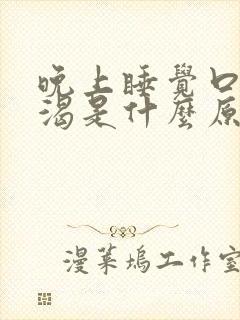 晚上睡覺口
渴是什麼原
漫葉塢工作室